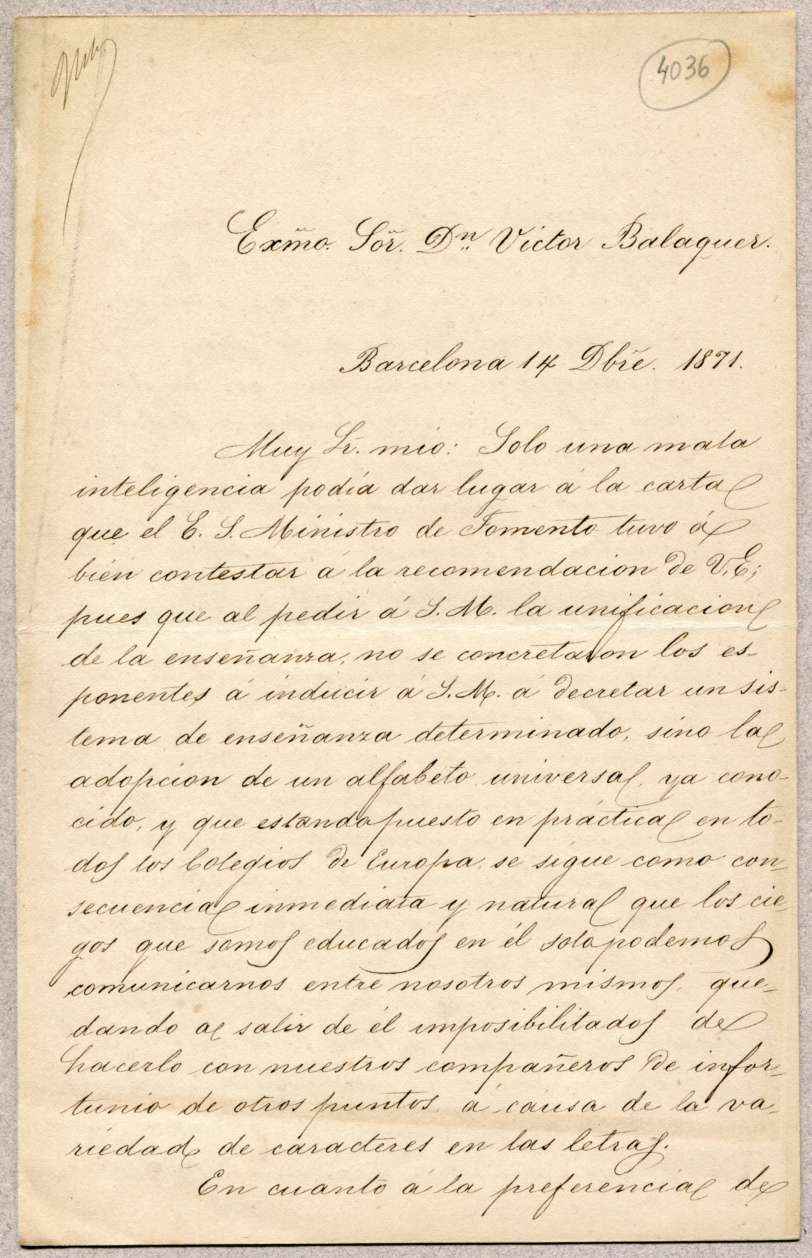 4036
Exm̃o. Sõr. Dn. Victor Balaguer.
Barcelona 14 Dbr̃e. 1871.
Muy Sr. mio: Solo una mala
inteligencia podía dar lugar á la carta
que el E. S. Ministro de Fomento tuvo á
bien contestar á la recomendacion de V. E;
pues que al pedir á S. M. la unificacion
de la enseñanza, no se concretaron los es-
ponentes á inducir á S. M. á decretar un sis-
tema de enseñanza determinado, sino la
adopcion de un alfabeto universal, ya cono-
cido, y que estando puesto en práctica en to-
dos los Colegios de Europa, se sigue como con-
secuencia inmediata y natural que los cie-
gos que somos educados en él solo podemos
comunicarnos entre nosotros mismos, que-
dando al salir de él imposibilitados de
hacerlo con nuestros compañeros de infor-
tunio de otros puntos, á causa de la va-
riedad de caracteres en las letras.
En cuanto á la preferencia de